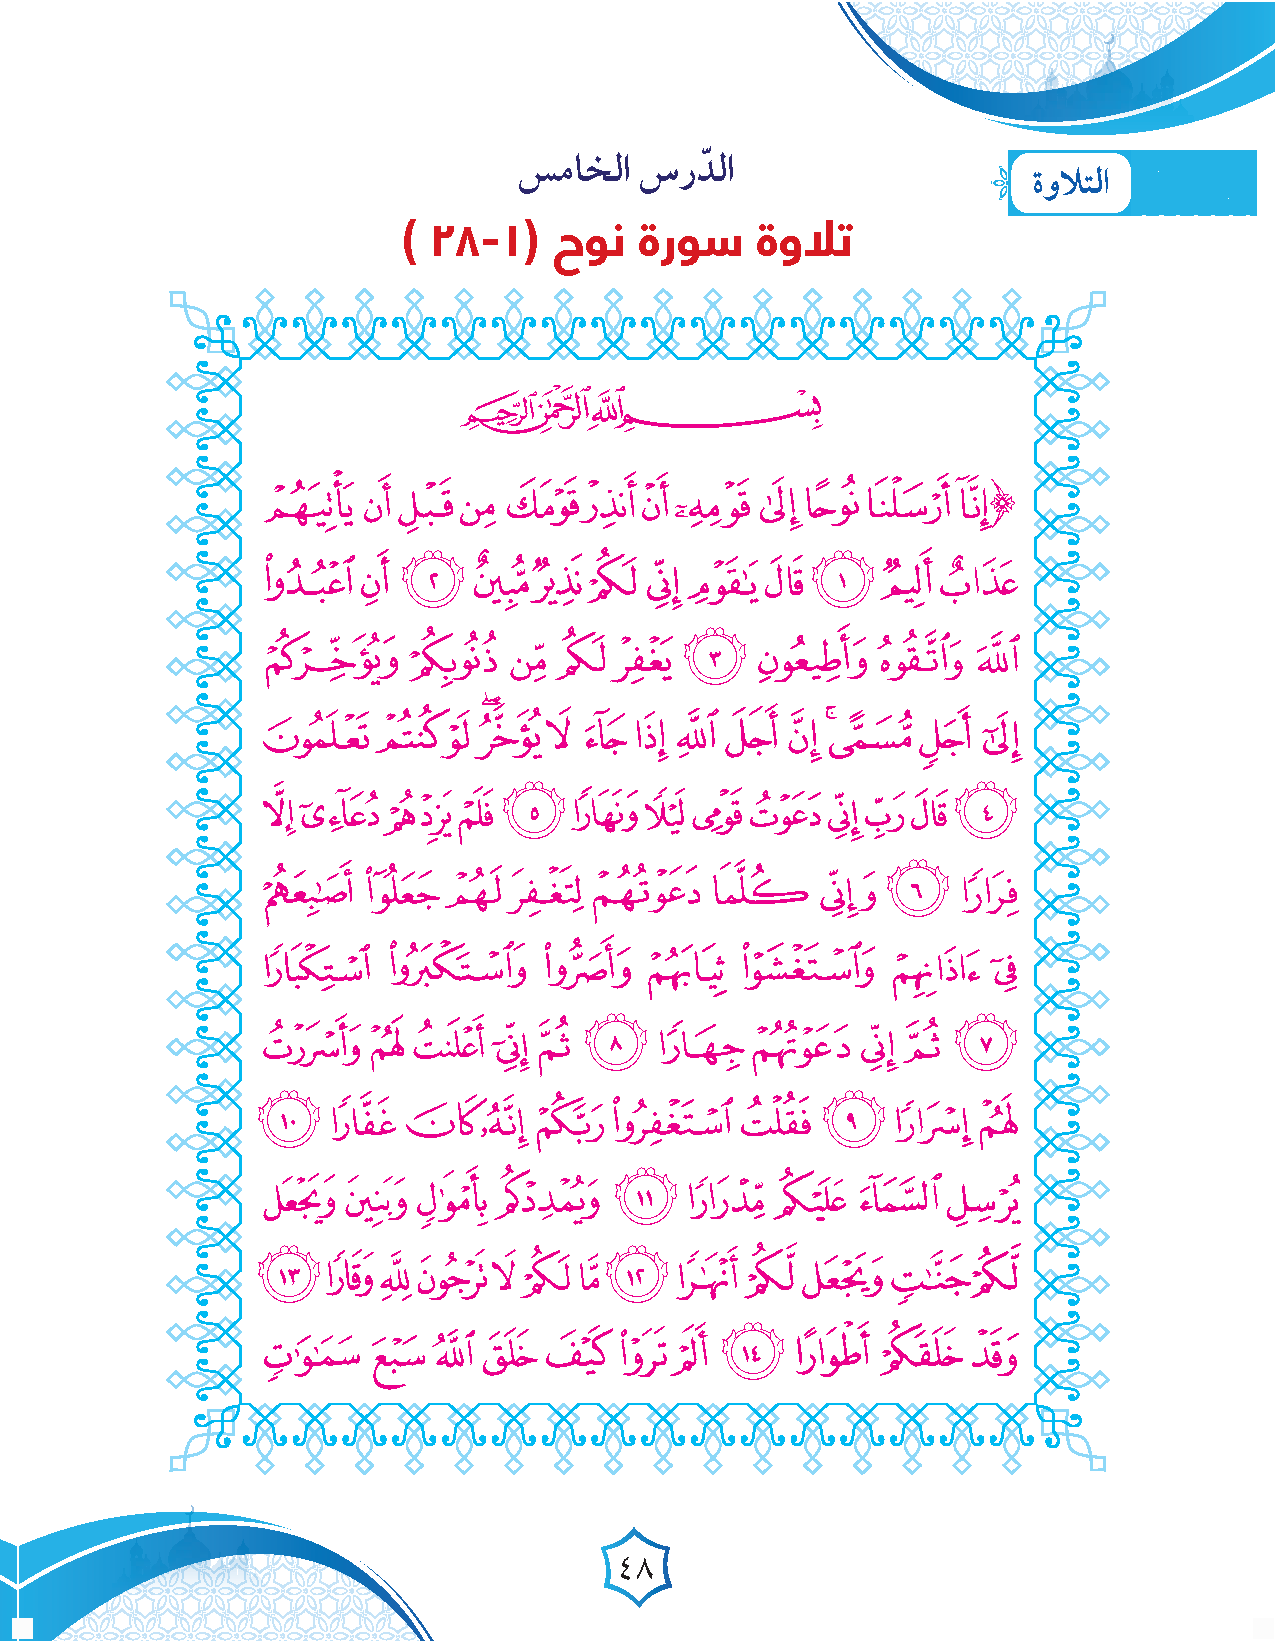 التلاوة
الدّرس الخامس
تلاوة سورة نوح (١-٢٨ )
بِسۡمِ ٱللَّهِ ٱلرَّحۡمَٰنِ ٱلرَّحِيمِ
﴿إِنَّآ أَرۡسَلۡنَا نُوحًا إِلَىٰ قَوۡمِهِۦٓ أَنۡ أَنذِرۡ قَوۡمَكَ مِن قَبۡلِ أَن يَأۡتِيَهُمۡ
عَذَابٌ أَلِيمٞ ١ قَالَ يَٰقَوۡمِ إِنِّي لَكُمۡ نَذِيرٞ مُّبِينٌ ٢ أَنِ ٱعۡبُدُواْ
ٱللَّهَ وَٱتَّقُوهُ وَأَطِيعُونِ ٣ يَغۡفِرۡ لَكُم مِّن ذُنُوبِكُمۡ وَيُؤَخِّرۡكُمۡ
إِلَىٰٓ أَجَلٖ مُّسَمًّىۚ إِنَّ أَجَلَ ٱللَّهِ إِذَا جَآءَ لَا يُؤَخَّرُۖ لَوۡ كُنتُمۡ تَعۡلَمُونَ
٤ قَالَ رَبِّ إِنِّي دَعَوۡتُ قَوۡمِي لَيۡلٗا وَنَهَارٗا ٥ فَلَمۡ يَزِدۡهُمۡ دُعَآءِيٓ إِلَّا
فِرَارٗا ٦ وَإِنِّي كُلَّمَا دَعَوۡتُهُمۡ لِتَغۡفِرَ لَهُمۡ جَعَلُوٓاْ أَصَٰبِعَهُمۡ
فِيٓ ءَاذَانِهِمۡ وَٱسۡتَغۡشَوۡاْ ثِيَابَهُمۡ وَأَصَرُّواْ وَٱسۡتَكۡبَرُواْ ٱسۡتِكۡبَارٗا
٧ ثُمَّ إِنِّي دَعَوۡتُهُمۡ جِهَارٗا ٨ ثُمَّ إِنِّيٓ أَعۡلَنتُ لَهُمۡ وَأَسۡرَرۡتُ
لَهُمۡ إِسۡرَارٗا ٩ فَقُلۡتُ ٱسۡتَغۡفِرُواْ رَبَّكُمۡ إِنَّهُۥ كَانَ غَفَّارٗا ١٠
يُرۡسِلِ ٱلسَّمَآءَ عَلَيۡكُم مِّدۡرَارٗا ١١ وَيُمۡدِدۡكُم بِأَمۡوَٰلٖ وَبَنِينَ وَيَجۡعَل
لَّكُمۡ جَنَّٰتٖ وَيَجۡعَل لَّكُمۡ أَنۡهَٰرٗا ١٢ مَّا لَكُمۡ لَا تَرۡجُونَ لِلَّهِ وَقَارٗا ١٣
وَقَدۡ خَلَقَكُمۡ أَطۡوَارًا ١٤ أَلَمۡ تَرَوۡاْ كَيۡفَ خَلَقَ ٱللَّهُ سَبۡعَ سَمَٰوَٰتٖ
٤٨